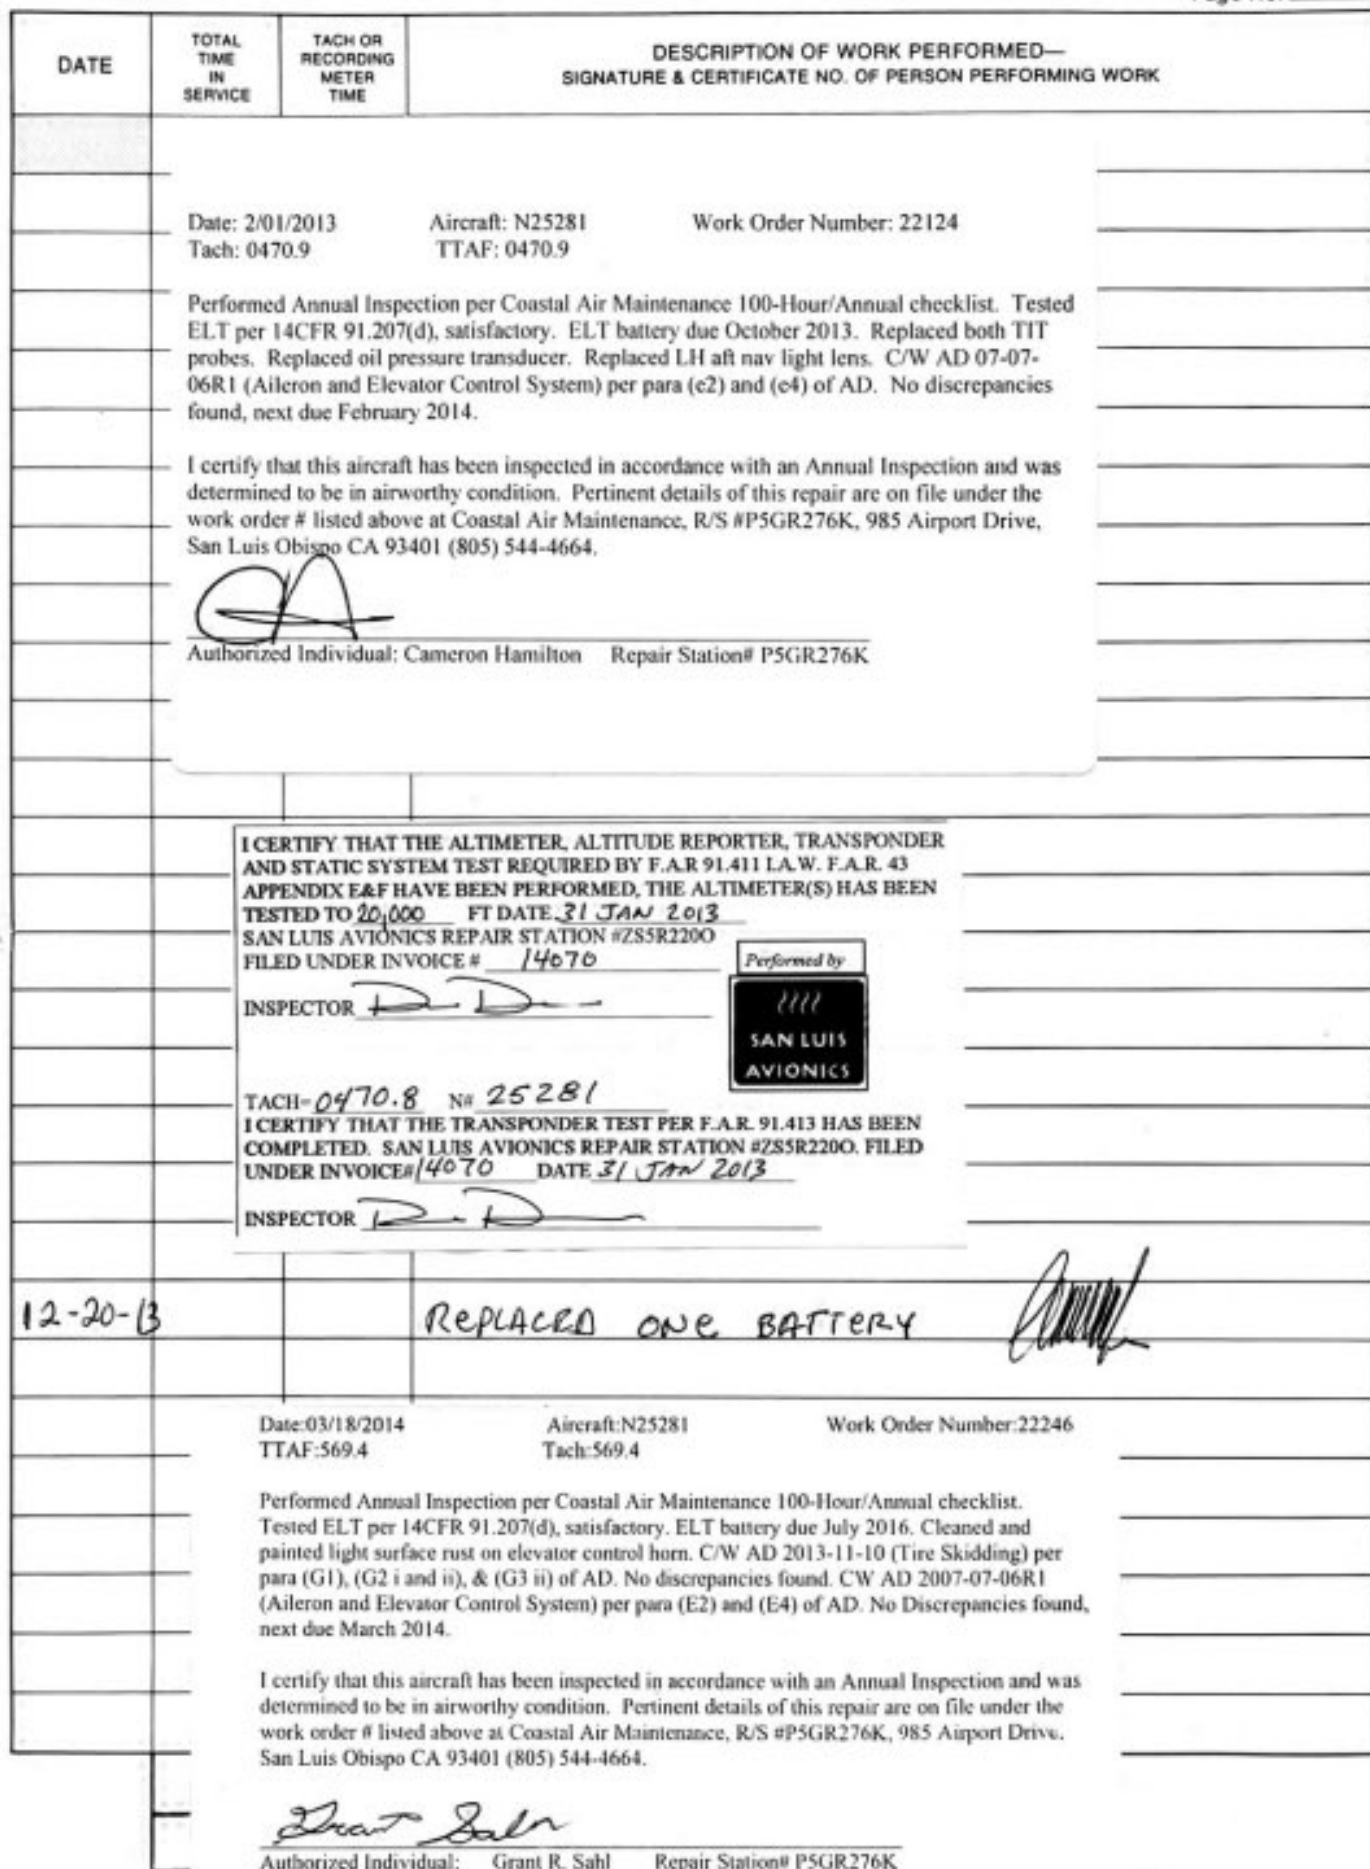 DATE
TOTAL TIME IN SERVICE
TACH OR RECORDING METER TIME
DESCRIPTION OF WORK PERFORMED—
SIGNATURE & CERTIFICATE NO. OF PERSON PERFORMING WORK
Date: 2/01/2013 Aircraft: N25281 Work Order Number: 22124
Tach: 0470.9 TTAF: 0470.9
Performed Annual Inspection per Coastal Air Maintenance 100-Hour/Annual checklist. Tested
ELT per 14CFR 91.207(d), satisfactory. ELT battery due October 2013. Replaced both TIT
probes. Replaced oil pressure transducer. Replaced LH aft nav light lens. C/W AD 07-07-
06R1 (Aileron and Elevator Control System) per para (e2) and (e4) of AD. No discrepancies
found, next due February 2014.
I certify that this aircraft has been inspected in accordance with an Annual Inspection and was
determined to be in airworthy condition. Pertinent details of this repair are on file under the
work order # listed above at Coastal Air Maintenance, R/S #P5GR276K, 985 Airport Drive,
San Luis Obispo CA 93401 (805) 544-4664.
Authorized Individual: Cameron Hamilton Repair Station# P5GR276K
I CERTIFY THAT THE ALTIMETER, ALTITUDE REPORTER, TRANSPONDER
AND STATIC SYSTEM TEST REQUIRED BY F.A.R 91.411 I.A.W. F.A.R. 43
APPENDIX E&F HAVE BEEN PERFORMED, THE ALTIMETER(S) HAS BEEN
TESTED TO 20,000 FT DATE 31 JAN 2013
SAN LUIS AVIONICS REPAIR STATION #ZS5R220O
FILED UNDER INVOICE # 14070
Performed by
INSPECTOR
SAN LUIS
AVIONICS
TACH= 0470.8 N# 25281
I CERTIFY THAT THE TRANSPONDER TEST PER F.A.R. 91.413 HAS BEEN
COMPLETED. SAN LUIS AVIONICS REPAIR STATION #ZS5R220O. FILED
UNDER INVOICE# 14070 DATE 31 JAN 2013
INSPECTOR
12-20-13 REPLACED ONE BATTERY
Date:03/18/2014 Aircraft:N25281 Work Order Number:22246
TTAF:569.4 Tach:569.4
Performed Annual Inspection per Coastal Air Maintenance 100-Hour/Annual checklist.
Tested ELT per 14CFR 91.207(d), satisfactory. ELT battery due July 2016. Cleaned and
painted light surface rust on elevator control horn. C/W AD 2013-11-10 (Tire Skidding) per
para (G1), (G2 i and ii), & (G3 ii) of AD. No discrepancies found. CW AD 2007-07-06R1
(Aileron and Elevator Control System) per para (E2) and (E4) of AD. No Discrepancies found,
next due March 2014.
I certify that this aircraft has been inspected in accordance with an Annual Inspection and was
determined to be in airworthy condition. Pertinent details of this repair are on file under the
work order # listed above at Coastal Air Maintenance, R/S #P5GR276K, 985 Airport Drive,
San Luis Obispo CA 93401 (805) 544-4664.
Grant Sahl
Authorized Individual: Grant R. Sahl Repair Station# P5GR276K